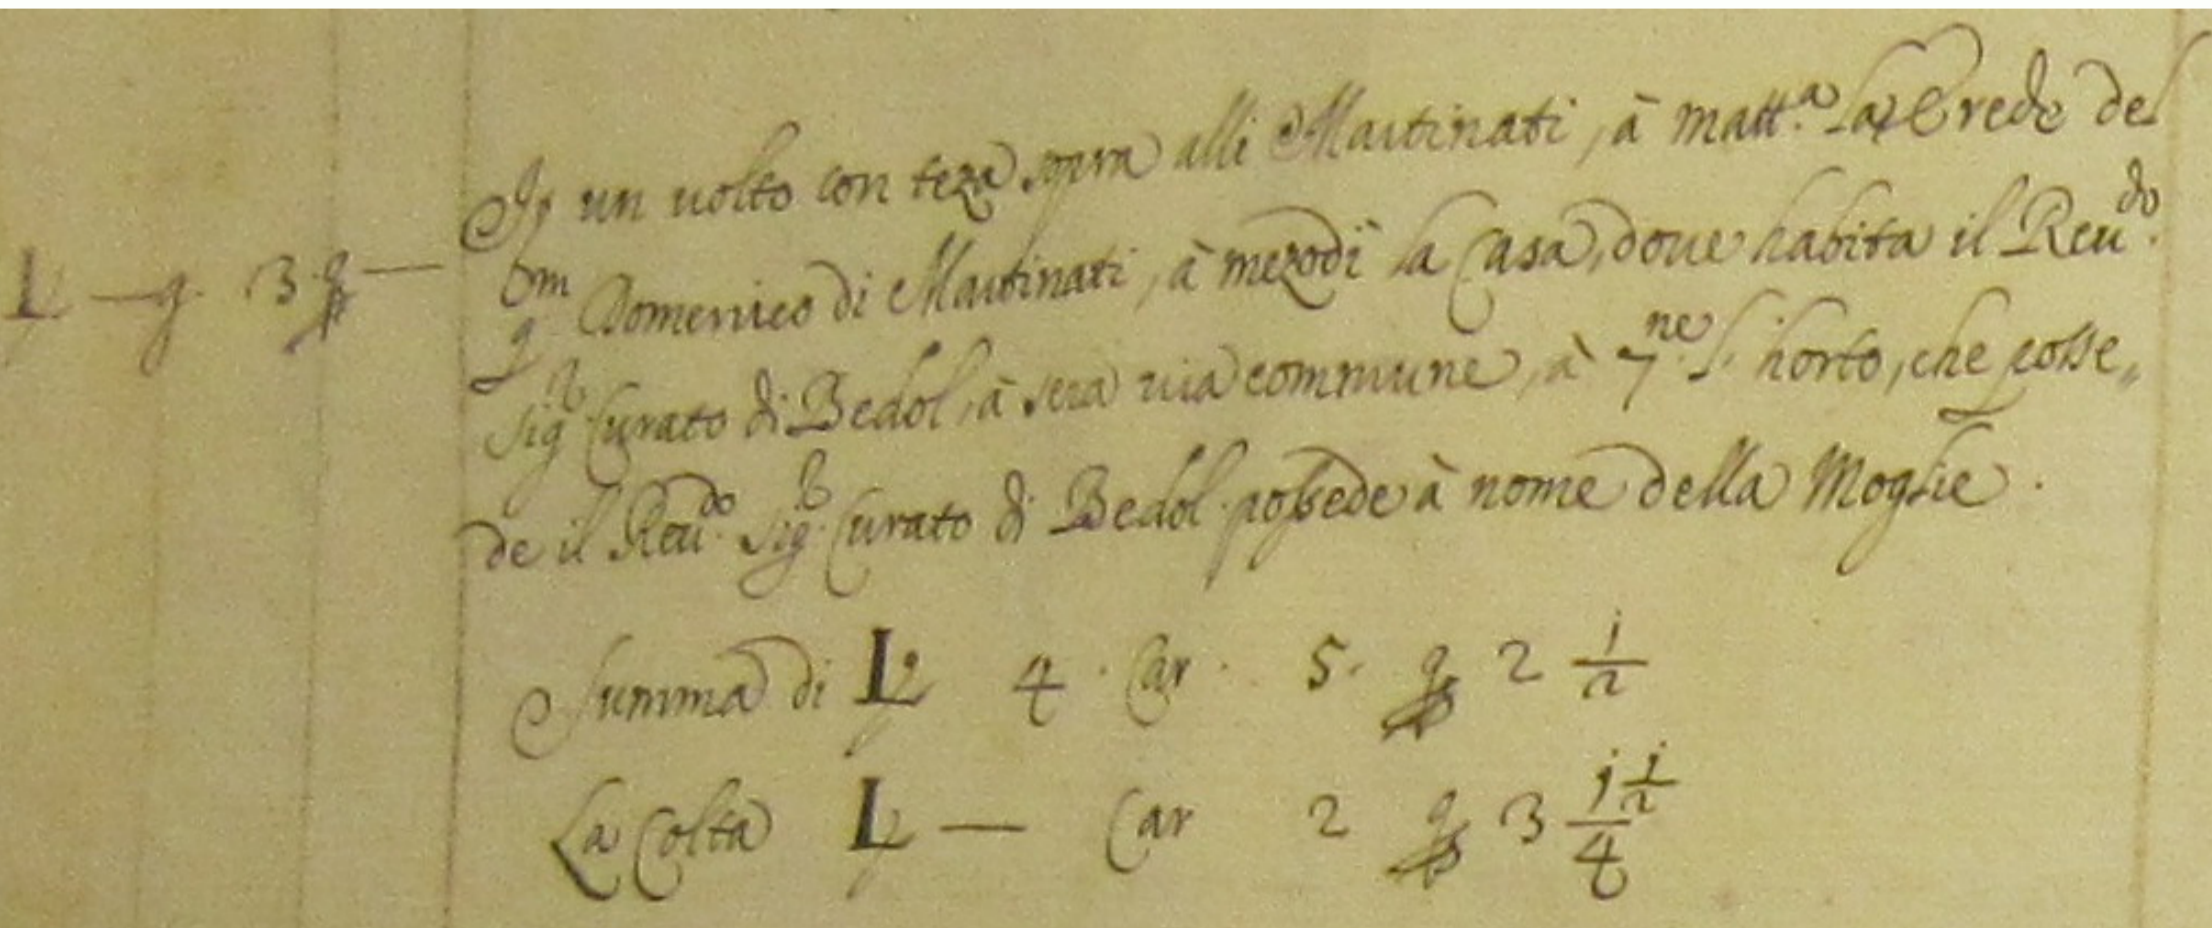 In un uolto con teza sopra alli Martinati, à matt.ª la Erede del
L — g. 3 q —
qm Domenico di Martinati, à mezodì la Casa, doue habita il Reu.do
sig.r Curato di Bedol, à sera uia commune, à 7.ne l'horto, che posse„
de il Reu.do sig.r Curato di Bedol possede à nome della Moglie.
Summa di L 4. Car. 5. q 2 1/2
La Colta L — Car 2 q 3 1 1/2 / 4